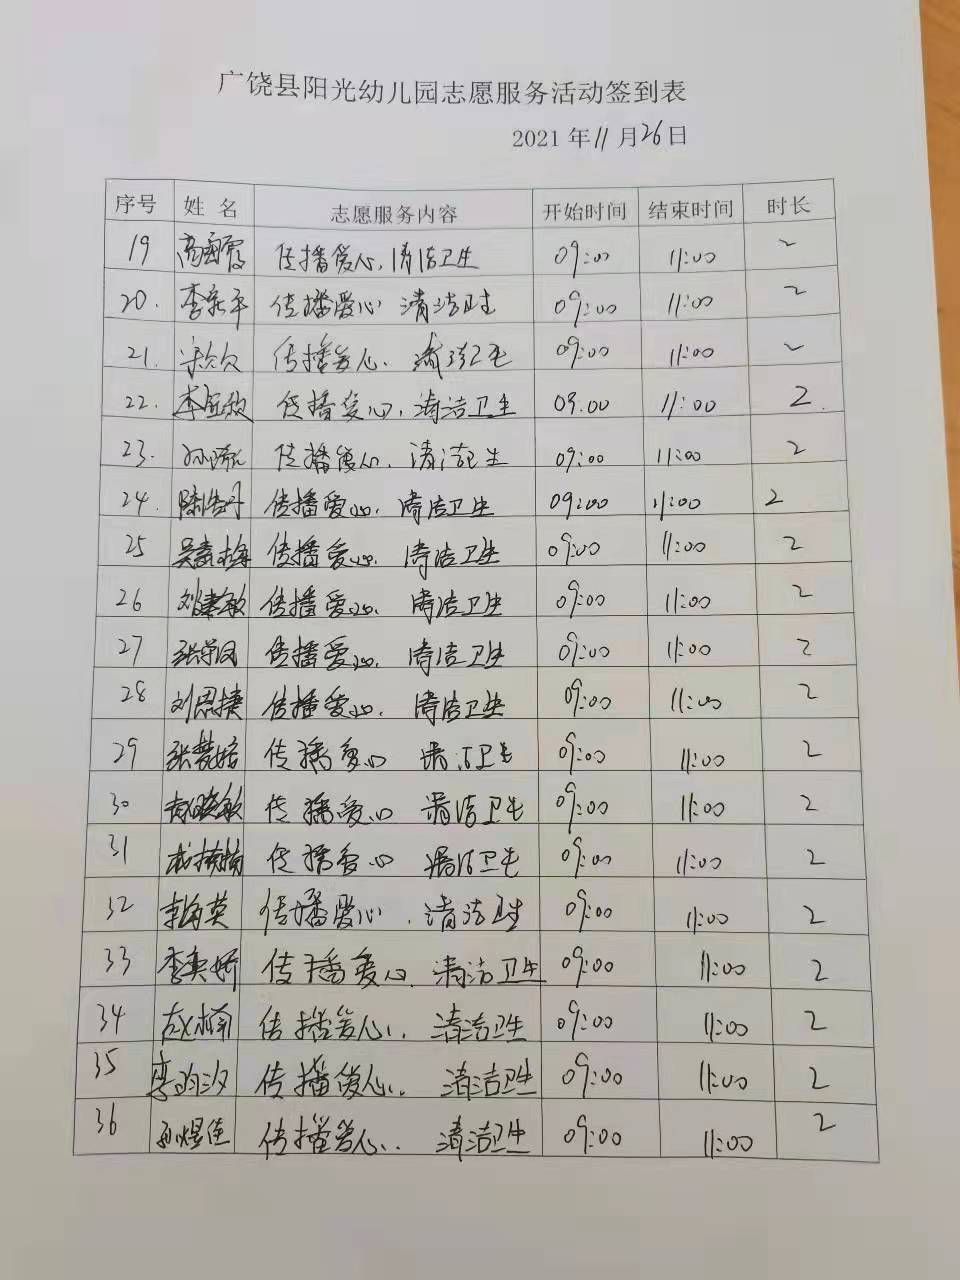 广饶县阳光幼儿园志愿服务活动签到表
2021年11月26日
序号 姓名 志愿服务内容 开始时间 结束时间 时长
19 传播爱心,清洁卫生 09:00 11:00 2
20. 李家平 传播爱心 清洁卫生 09:00 11:00 2
21. 宋欠欠 传播爱心. 清洁卫生 09:00 11:00 2
22. 李亚欣 传播爱心,清洁卫生 09.00 11:00 2
23. 传播爱心,清洁卫生 09:00 11:00 2
24. 陈浩丹 传播爱心. 清洁卫生 09:00 11:00 2
25 吴春梅 传播爱心. 清洁卫生 09:00 11:00 2
26 刘建敏 传播爱心. 清洁卫生 09:00 11:00 2
27 传播爱心. 清洁卫生 09:00 11:00 2
28 刘恩捷 传播爱心. 清洁卫生 09:00 11:00 2
29 张梦婷 传播爱心 清洁卫生 09:00 11:00 2
30 赵晓敏 传播爱心 清洁卫生 09:00 11:00 2
31 传播爱心 清洁卫生 09:00 11:00 2
32 李海英 传播爱心.清洁卫生 09:00 11:00 2
33 李奕娇 传播爱心.清洁卫生 09:00 11:00 2
34 赵楠 传播爱心.. 清洁卫生 09:00 11:00 2
35 李昀汐 传播爱心.. 清洁卫生 09:00 11:00 2
36 孙煜佳 传播爱心.. 清洁卫生 09:00 11:00 2